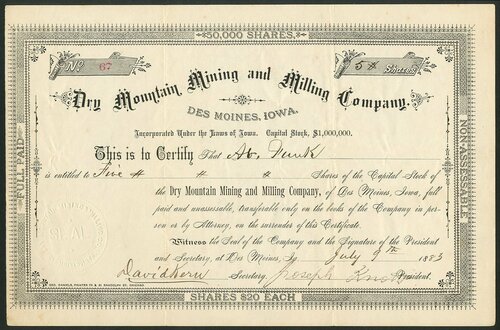 50,000 SHARES.
No. 67
5 # Shares
Dry Mountain Mining and Milling Company.
DES MOINES, IOWA.
Incorporated Under the Laws of Iowa. Capital Stock, $1,000,000.
This is to Certify That Ab. Funk
is entitled to Five # # # Shares of the Capital Stock of
the Dry Mountain Mining and Milling Company, of Des Moines, Iowa, full
paid and unassessable, transferable only on the books of the Company in per-
son or by Attorney, on the surrender of this Certificate.
Witness the Seal of the Company and the Signature of the President
and Secretary, at Des Moines, Ia. July 9th 1883
David Kern Secretary. Joseph President.
GEO. DANIELS, PRINTER 79 & 81 RANDOLPH ST. CHICAGO.
SHARES $20 EACH
FULL PAID
NON-ASSESSABLE
SEAL